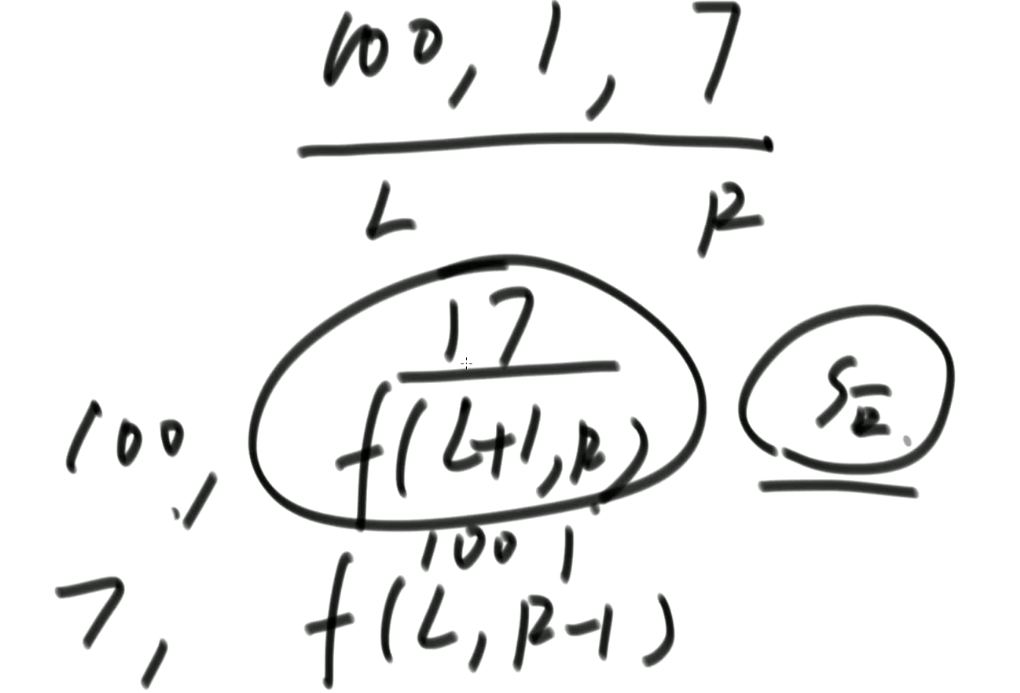 100, 1, 7
L R
17
100, f(L+1, R)
100 1
7, f(L, R-1)